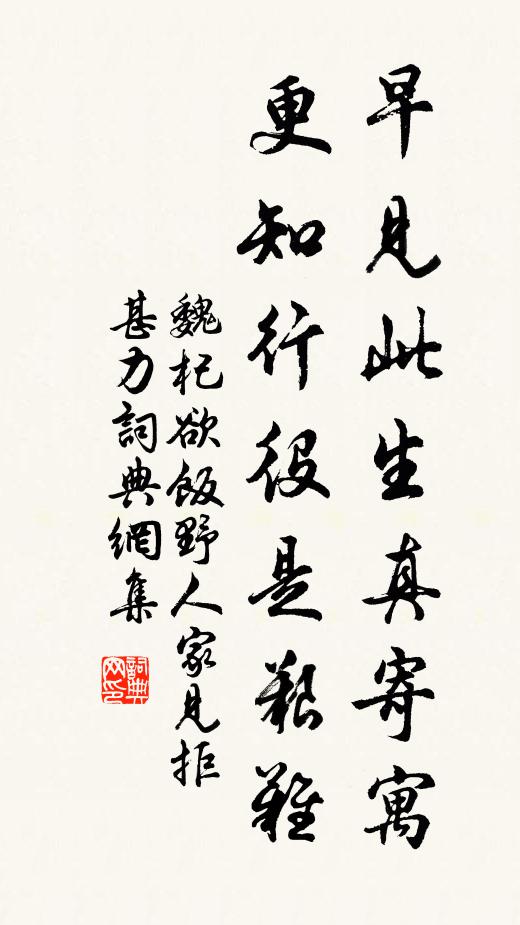 早見此生真寄寓
更知行役是艱難
魏杞欲飯野人家見拒
甚力詞典網集
詞典网印